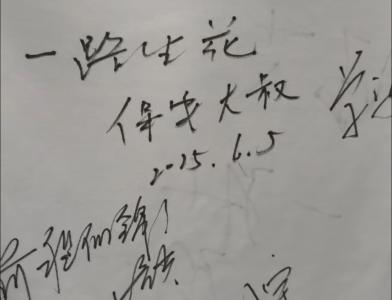 一路生花
保安大叔
2025.6.5
前程似锦